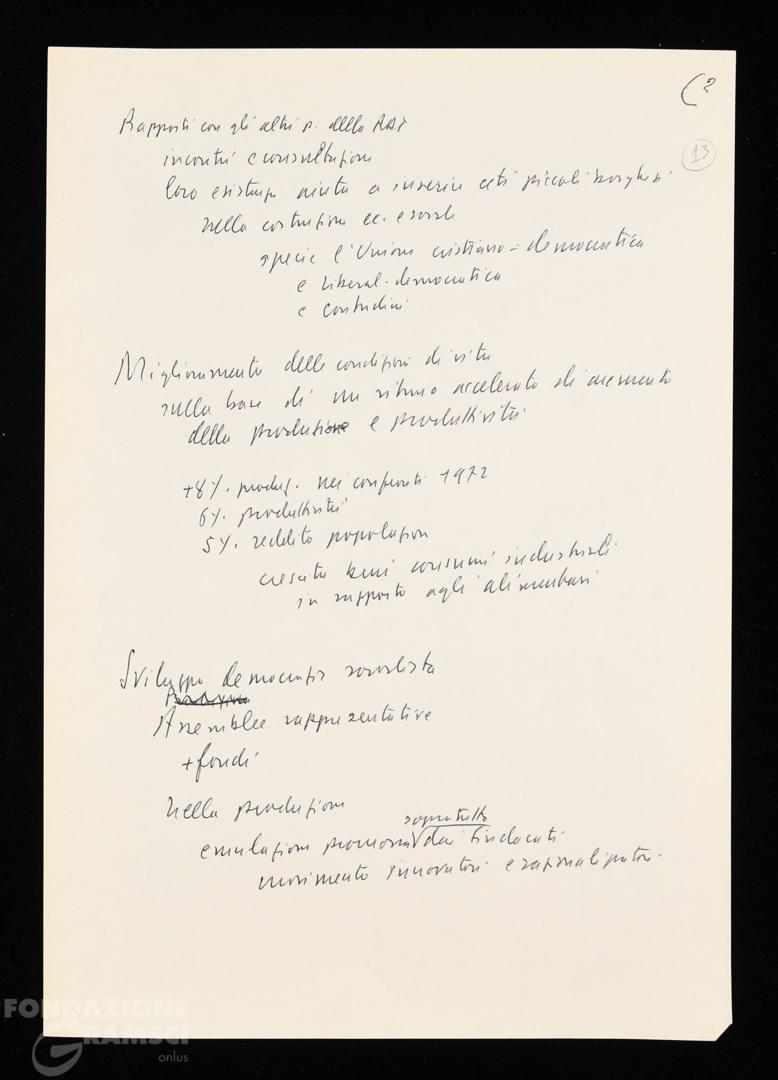 (2
13
Rapporti con gli altri p. della RDT
incontri e consultazioni
loro esistenza aiuta a inserire ceti piccoli borghesi
nella costruzione ec. e sociale
specie l'Unione cristiano-democratica
e liberal-democratica
e contadini
Miglioramento delle condizioni di vita
sulla base di un ritmo accelerato di aumento
della produzione e produttività
+8%. produz. nei confronti 1972
6%. produttività
5%. reddito popolazione
crescita beni consumi industriali
in rapporto agli alimentari
Sviluppo democrazia socialista
Assemblee rappresentative
+ fondi
nella produzione
soprattutto
emulazione promossa dai sindacati
movimento innovatori e razionalizzatori
FONDAZIONE
GRAMSCI
onlus